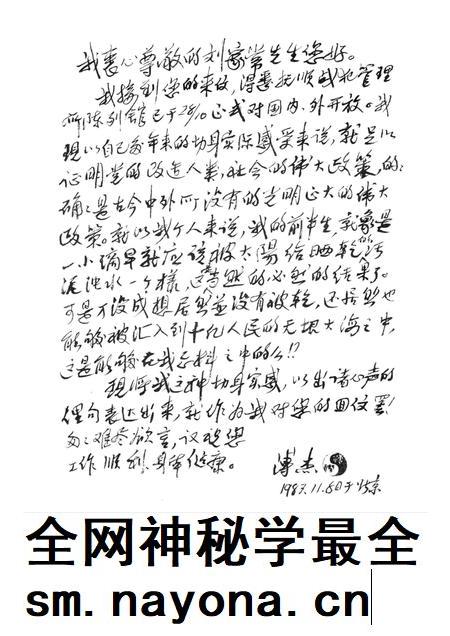 我衷心尊敬的刘家常先生您好。
我接到您的来信,得悉抚顺战犯管理
所陈列馆已于 正式对国内、外开放。我
现以自己多年来的切身实际感受来说,就足以
证明党的改造人类,社会的伟大政策,的
确是古今中外所没有的光明正大的伟大
政策。就以我个人来说,我的前半生,就象是
一小滴早就应该被太阳给晒乾的污
泥浊水一个样,这当然的必然的结果了。
可是万没成想居然並没有被乾,还居然也
能够被汇入到十亿人民的无垠大海之中,
这是能够在我意料之中的么!?
现将我这种切身实感,以出诸心声的
俚句表达出来,就作为我对您的回信罢!
匆匆难尽欲言,谨祝您
工作顺利,身体健康。
溥杰
1987.11.6日于北京
全网神秘学最全
sm.nayona.cn